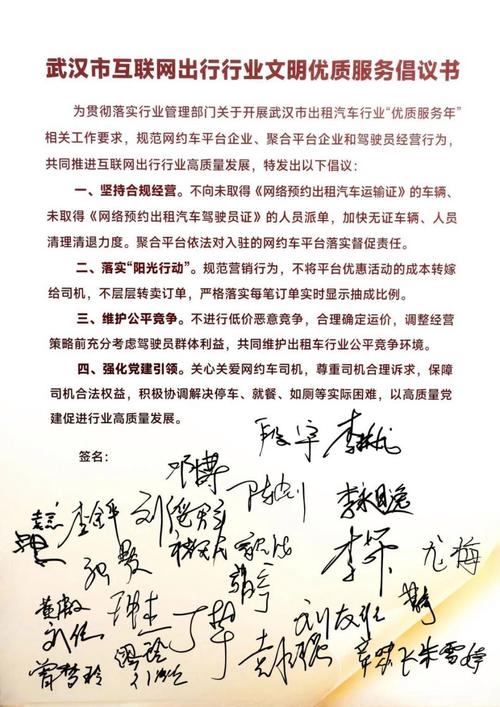 武汉市互联网出行行业文明优质服务倡议书
为贯彻落实行业管理部门关于开展武汉市出租汽车行业“优质服务年”
相关工作要求，规范网约车平台企业、聚合平台企业和驾驶员经营行为，
共同推进互联网出行行业高质量发展，特发出以下倡议：
一、坚持合规经营。不向未取得《网络预约出租汽车运输证》的车辆、
未取得《网络预约出租汽车驾驶员证》的人员派单，加快无证车辆、人员
清理清退力度。聚合平台依法对入驻的网约车平台落实督促责任。
二、落实“阳光行动”。规范营销行为，不将平台优惠活动的成本转嫁
给司机，不层层转卖订单，严格落实每笔订单实时显示抽成比例。
三、维护公平竞争。不进行低价恶意竞争，合理确定运价，调整经营
策略前充分考虑驾驶员群体利益，共同维护出租车行业公平竞争环境。
四、强化党建引领。关心关爱网约车司机，尊重司机合理诉求，保障
司机合法权益，积极协调解决停车、就餐、如厕等实际困难，以高质量党
建促进行业高质量发展。
签名：
段宇
邓博
李余平
尤梅
丁苹
曾梦玲
朱雪婷